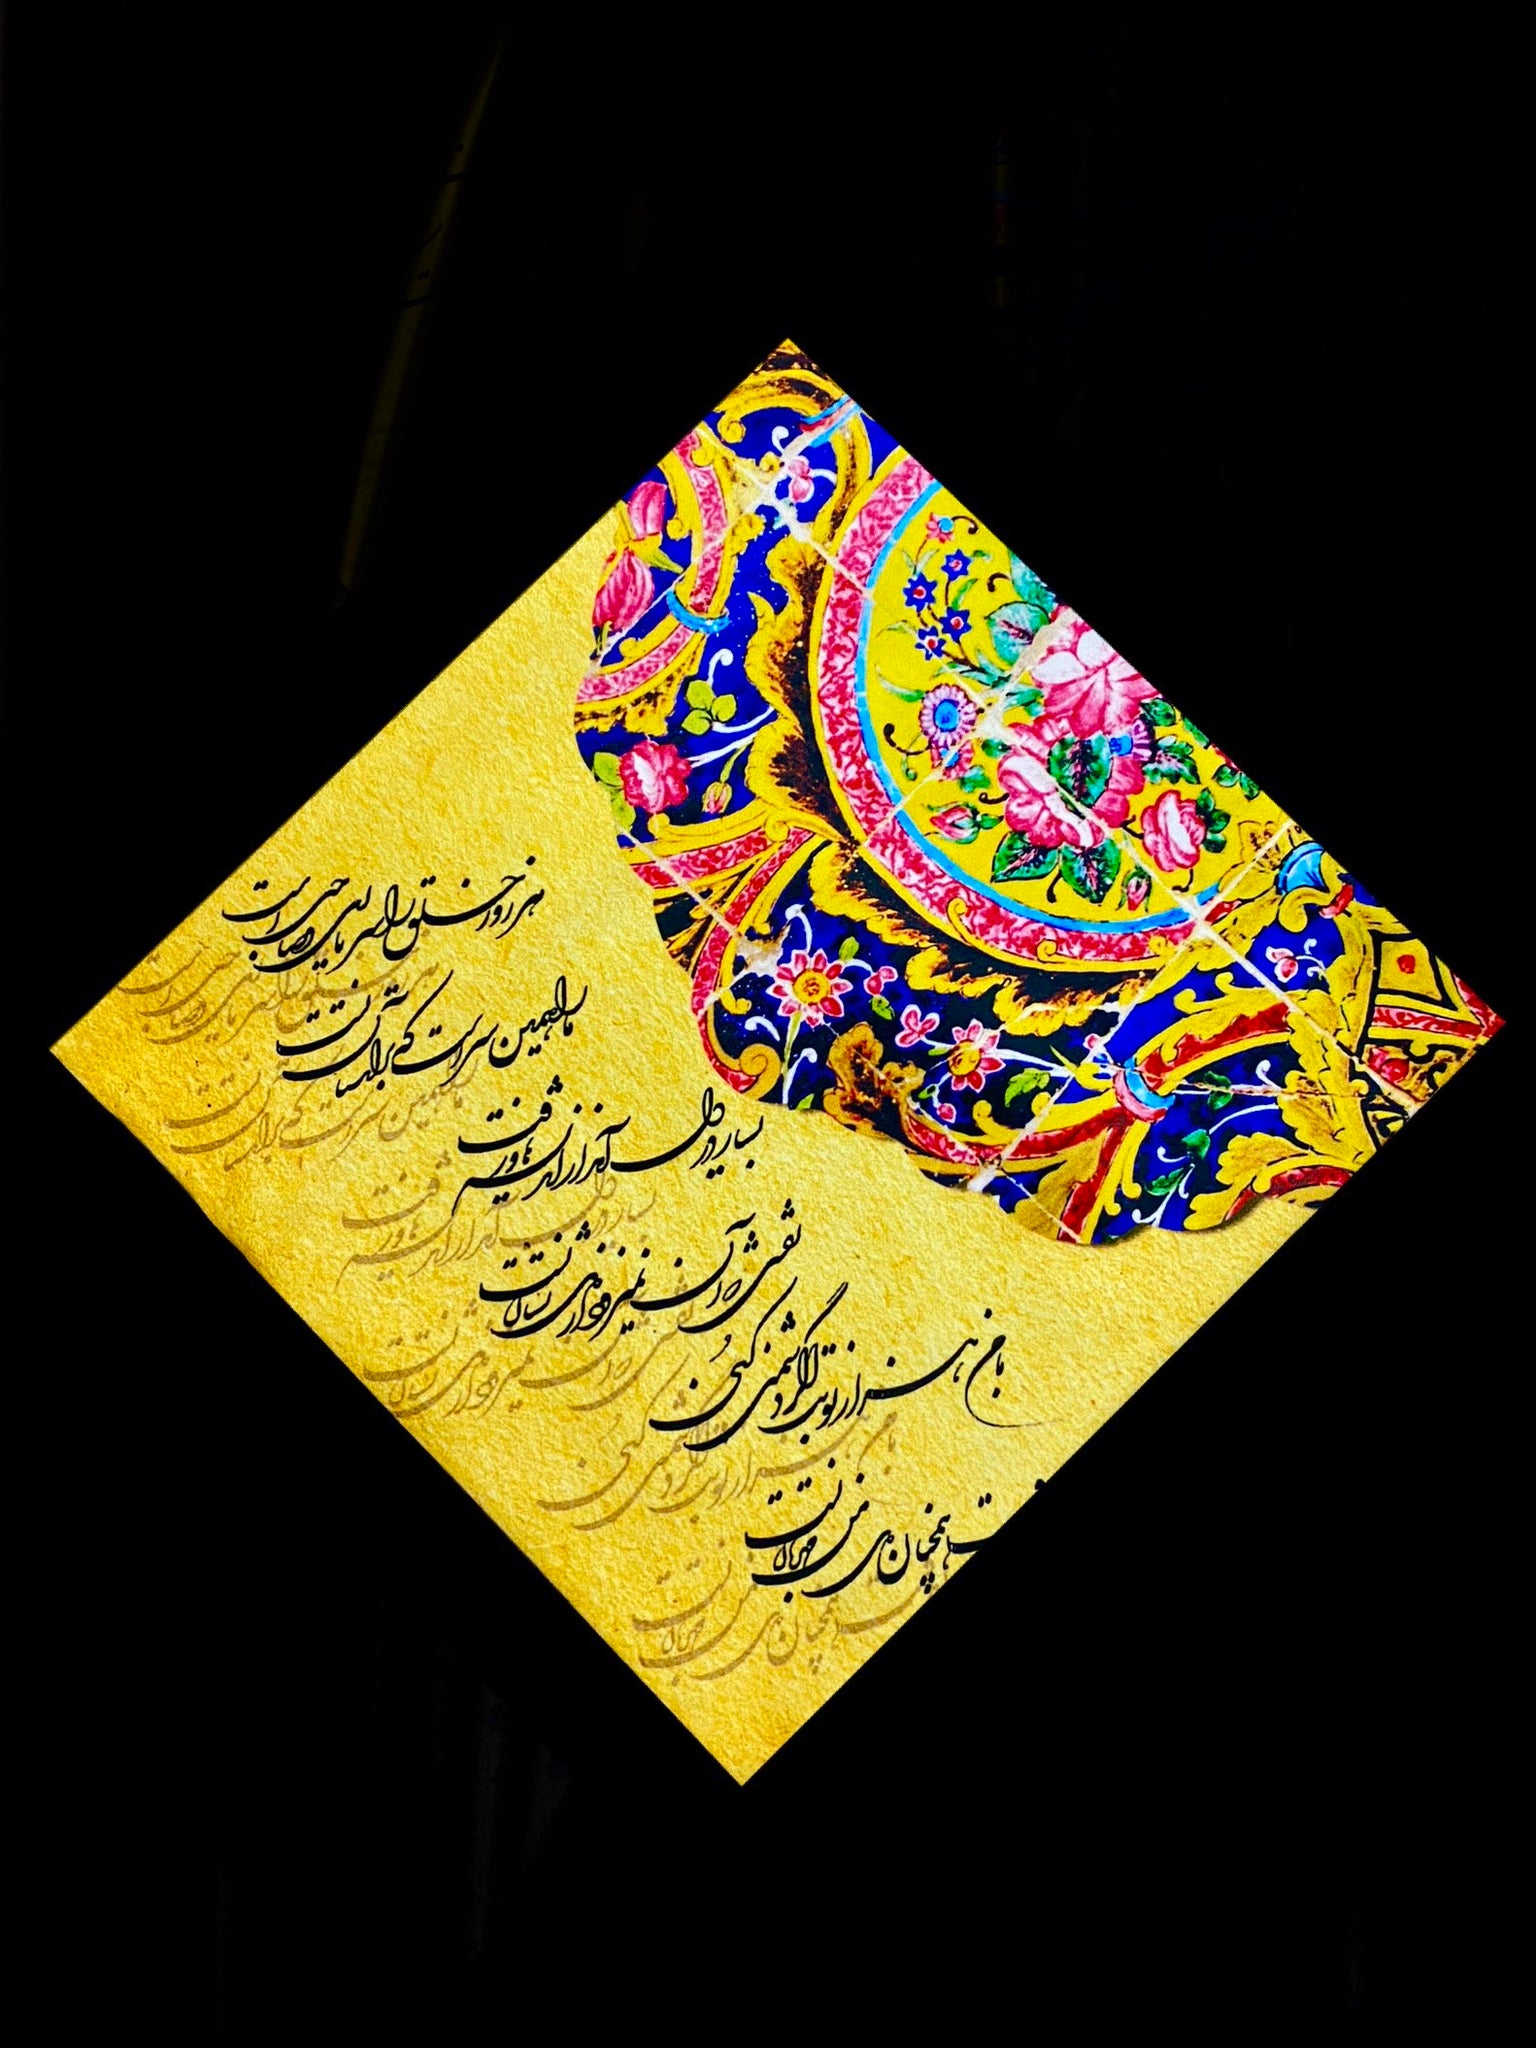 هر روز خلق را سر یاری و صاحبی است
ما را همین سر است که بر آستان تست
بسیار در دل آمد از اندیشه‌ها و رفت
نقشی که آن نمیرود از دل نشان تست
با من هزار نوبت اگر دشمنی کنی
همچنان دل من مهربان تست